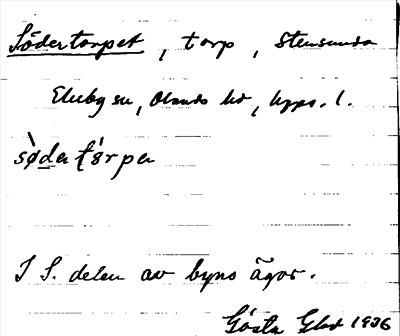 Södertorpet, torp, Stensunda
Ekeby sn, Olands hd, Upps. l.
sø̀da tɷ́rpa
I S. delen av byns ägor.
Gösta Glad 1936